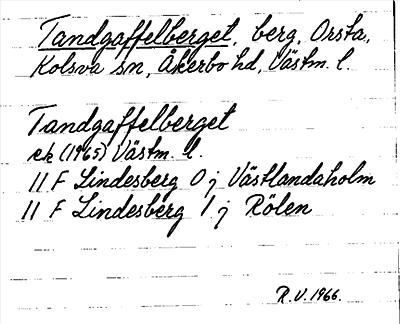 Tandgaffelberget, berg, Orsta,
Kolsva sn, Åkerbo hd, Västm. l.
Tandgaffelberget
ek (1965) Västm. l.
11 F Lindesberg 0 j Västlandaholm
11 F Lindesberg 1 j Rölen
R.V. 1966.